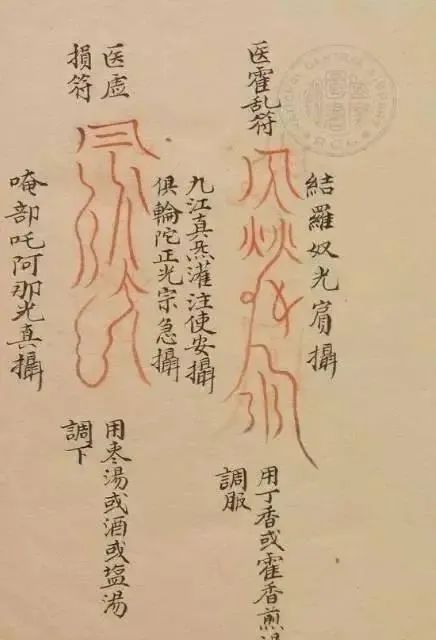 医霍乱符
結羅奴光肩攝
九江真炁灌注使安攝
用丁香或霍香煎湯
調服
医虛
損符
俱輪陀正光宗急攝
唵部吒阿那光真攝
用枣湯或酒或塩湯
調下